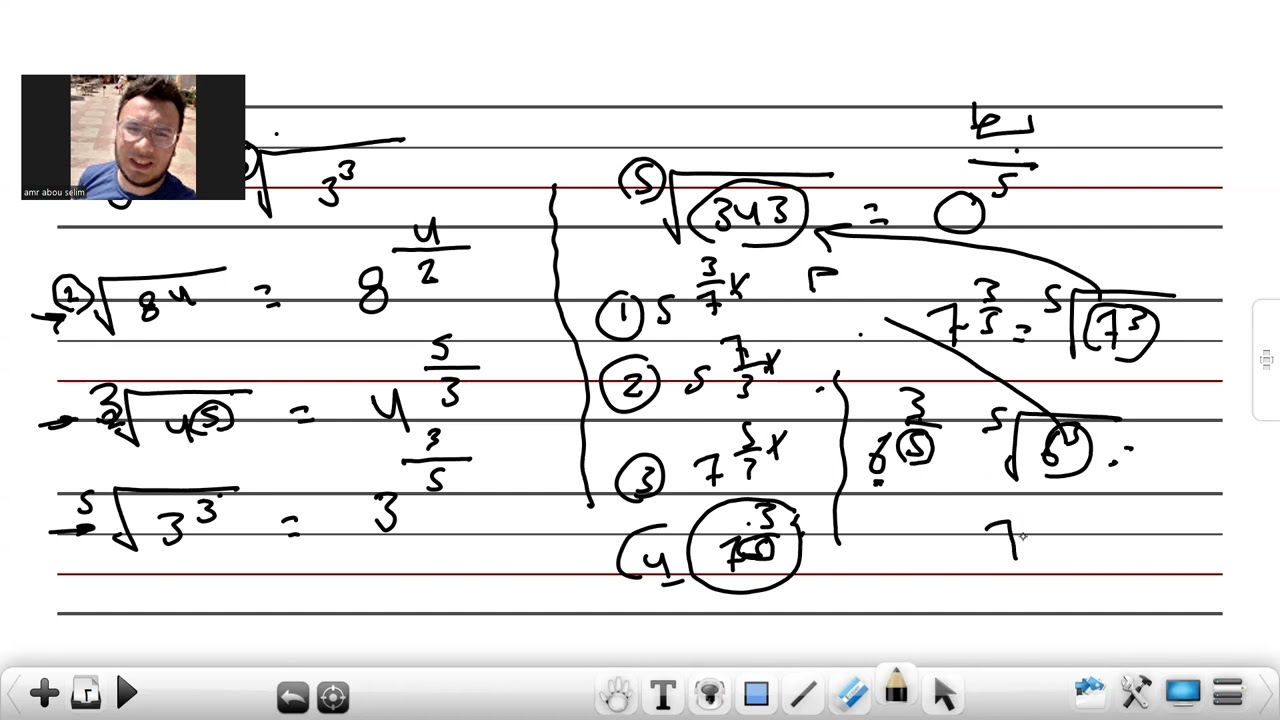 amr abou selim
√3^3
②√8^4 = 8^(4/2)
3√4^5 = 4^(5/3)
5√3^3 = 3^(3/5)
⑤√343 =
5
① 5^(3/7) x
② 5^(7/3) x
③ 7^(5/3) x
4
7^(3/3) = 5√7^3
6^(3/5) 5√6^3
7
T